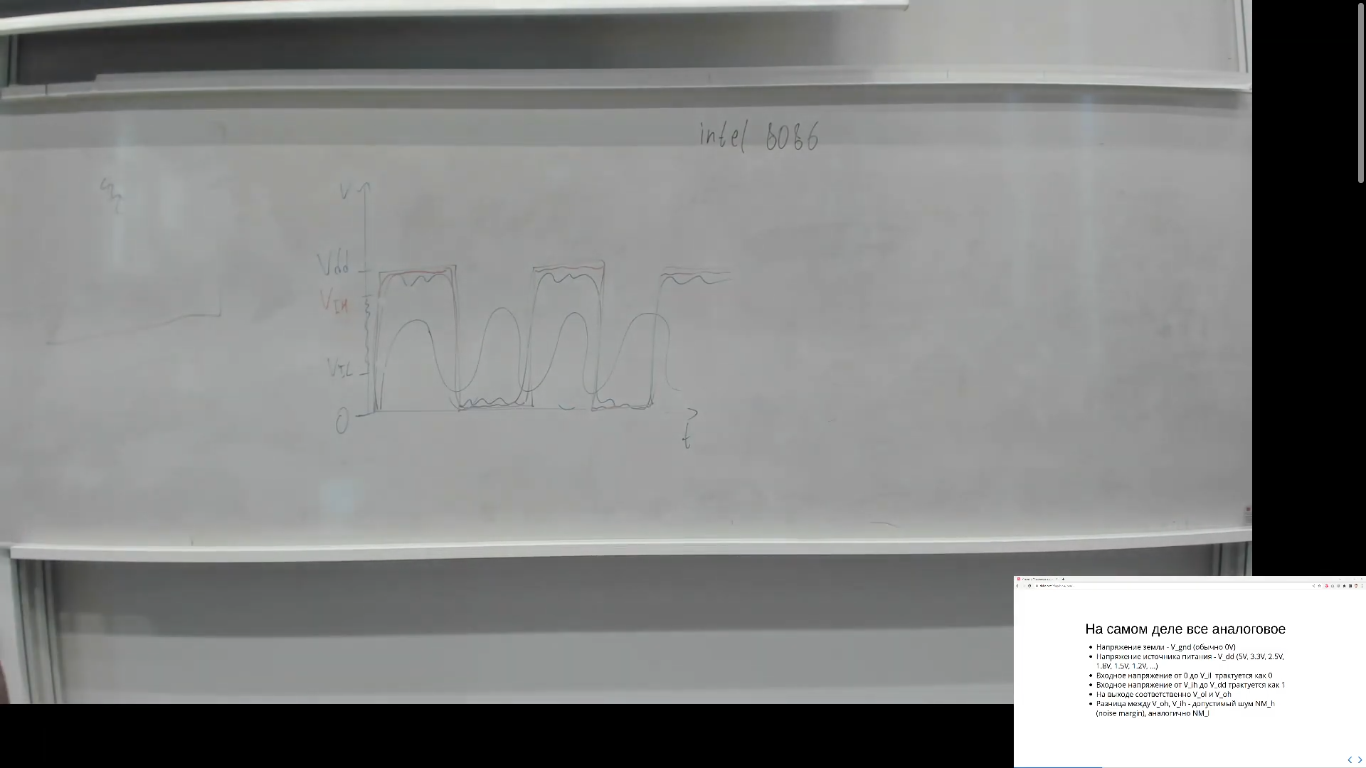 intel 8086
V
Vdd
VIH
VIL
0
t
На самом деле все аналоговое
Напряжение земли - V_gnd (обычно 0V)
Напряжение источника питания - V_dd (5V, 3.3V, 2.5V,
1.8V, 1.5V, 1.2V, ...)
Входное напряжение от 0 до V_il трактуется как 0
Входное напряжение от V_ih до V_dd трактуется как 1
На выходе соответственно V_ol и V_oh
Разница между V_oh, V_ih - допустимый шум NM_h
(noise margin), аналогично NM_l